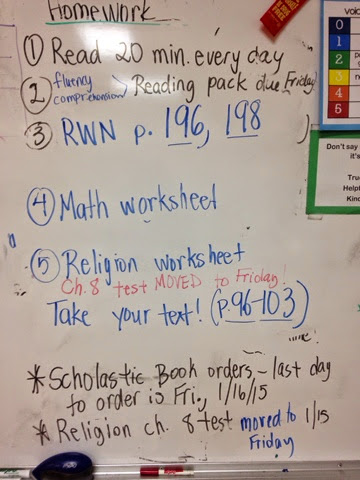 Homework
① Read 20 min. every day
② fluency comprehension > Reading pack due Friday
③ RWN p. 196, 198
④ Math worksheet
⑤ Religion worksheet
Ch. 8 test MOVED to Friday!
Take your text! (p. 96-103)
* Scholastic Book orders - last day
to order is Fri., 1/16/15
* Religion ch. 8 test moved to 1/15
Friday
voic
0
1
2
3
4
5
Don't say
it's
True
Helpf
Kind